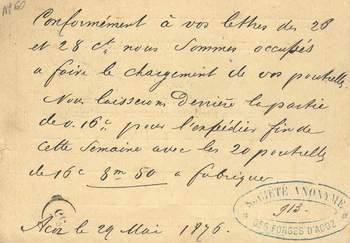 N° 60
Conformément à vos lettres des 26
et 28 ct. nous sommes occupés
a faire le chargement de vos poutrelles.
Nous laisserons derrière la partie
de 0.16c. pour l'expédier fin de
cette semaine avec les 20 poutrelles
de 16c 8m 50 a fabriquer
Acoz le 29 Mai 1876.
SOCIÉTÉ ANONYME
913.
DES FORGES D'ACOZ